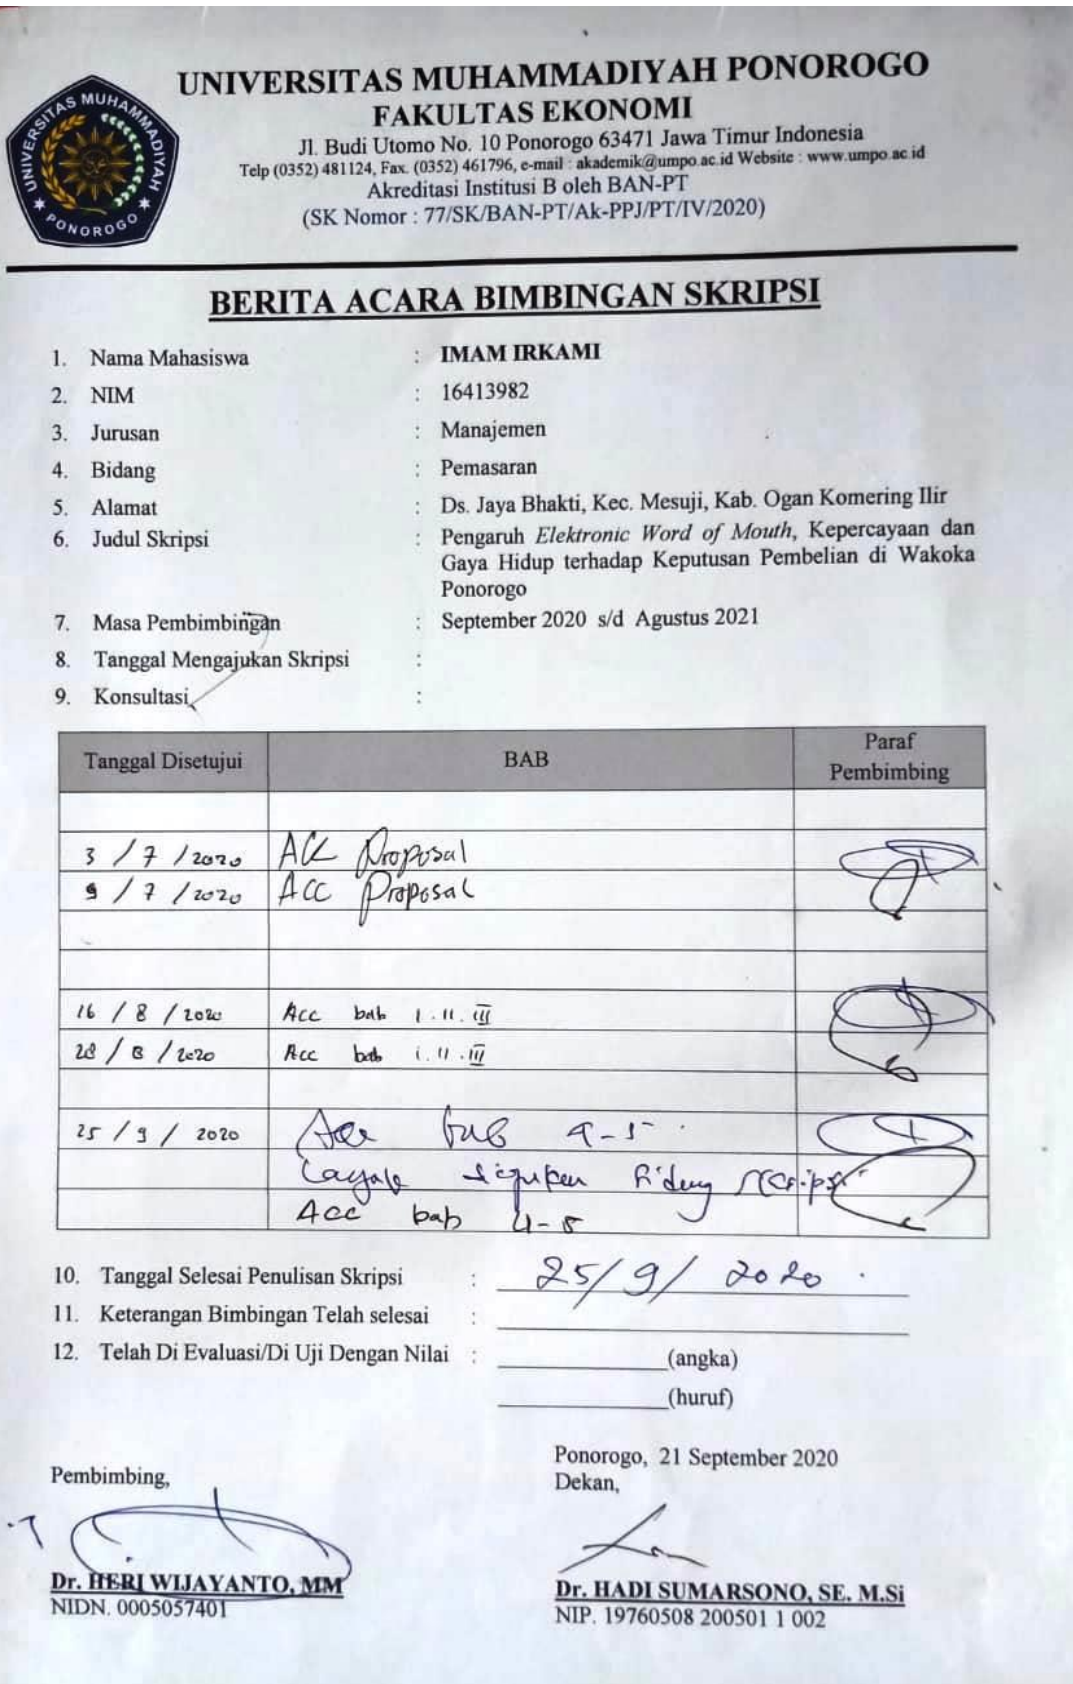 UNIVERSITAS MUHAMMADIYAH PONOROGO
UNIVERSITAS MUHAMMADIYAH PONOROGO
FAKULTAS EKONOMI
Jl. Budi Utomo No. 10 Ponorogo 63471 Jawa Timur Indonesia
Telp (0352) 481124, Fax. (0352) 461796, e-mail : akademik@umpo.ac.id Website : www.umpo.ac.id
Akreditasi Institusi B oleh BAN-PT
(SK Nomor : 77/SK/BAN-PT/Ak-PPJ/PT/IV/2020)
BERITA ACARA BIMBINGAN SKRIPSI
1. Nama Mahasiswa : IMAM IRKAMI
2. NIM : 16413982
3. Jurusan : Manajemen
4. Bidang : Pemasaran
5. Alamat : Ds. Jaya Bhakti, Kec. Mesuji, Kab. Ogan Komering Ilir
6. Judul Skripsi : Pengaruh Elektronic Word of Mouth, Kepercayaan dan
Gaya Hidup terhadap Keputusan Pembelian di Wakoka
Ponorogo
7. Masa Pembimbingan : September 2020 s/d Agustus 2021
8. Tanggal Mengajukan Skripsi :
9. Konsultasi :
Tanggal Disetujui BAB Paraf
Pembimbing
3 / 7 / 2020 Acc Proposal
9 / 7 / 2020 Acc Proposal
16 / 8 / 2020 Acc bab I. II. III
28 / 8 / 2020 Acc bab I. II. III
25 / 9 / 2020 Acc bab 4-5.
Layak sidang
Acc bab 4-5
10. Tanggal Selesai Penulisan Skripsi : 25/9/2020.
11. Keterangan Bimbingan Telah selesai :
12. Telah Di Evaluasi/Di Uji Dengan Nilai : (angka)
(huruf)
Ponorogo, 21 September 2020
Pembimbing,
Dekan,
Dr. HERI WIJAYANTO, MM
NIDN. 0005057401
Dr. HADI SUMARSONO, SE. M.Si
NIP. 19760508 200501 1 002